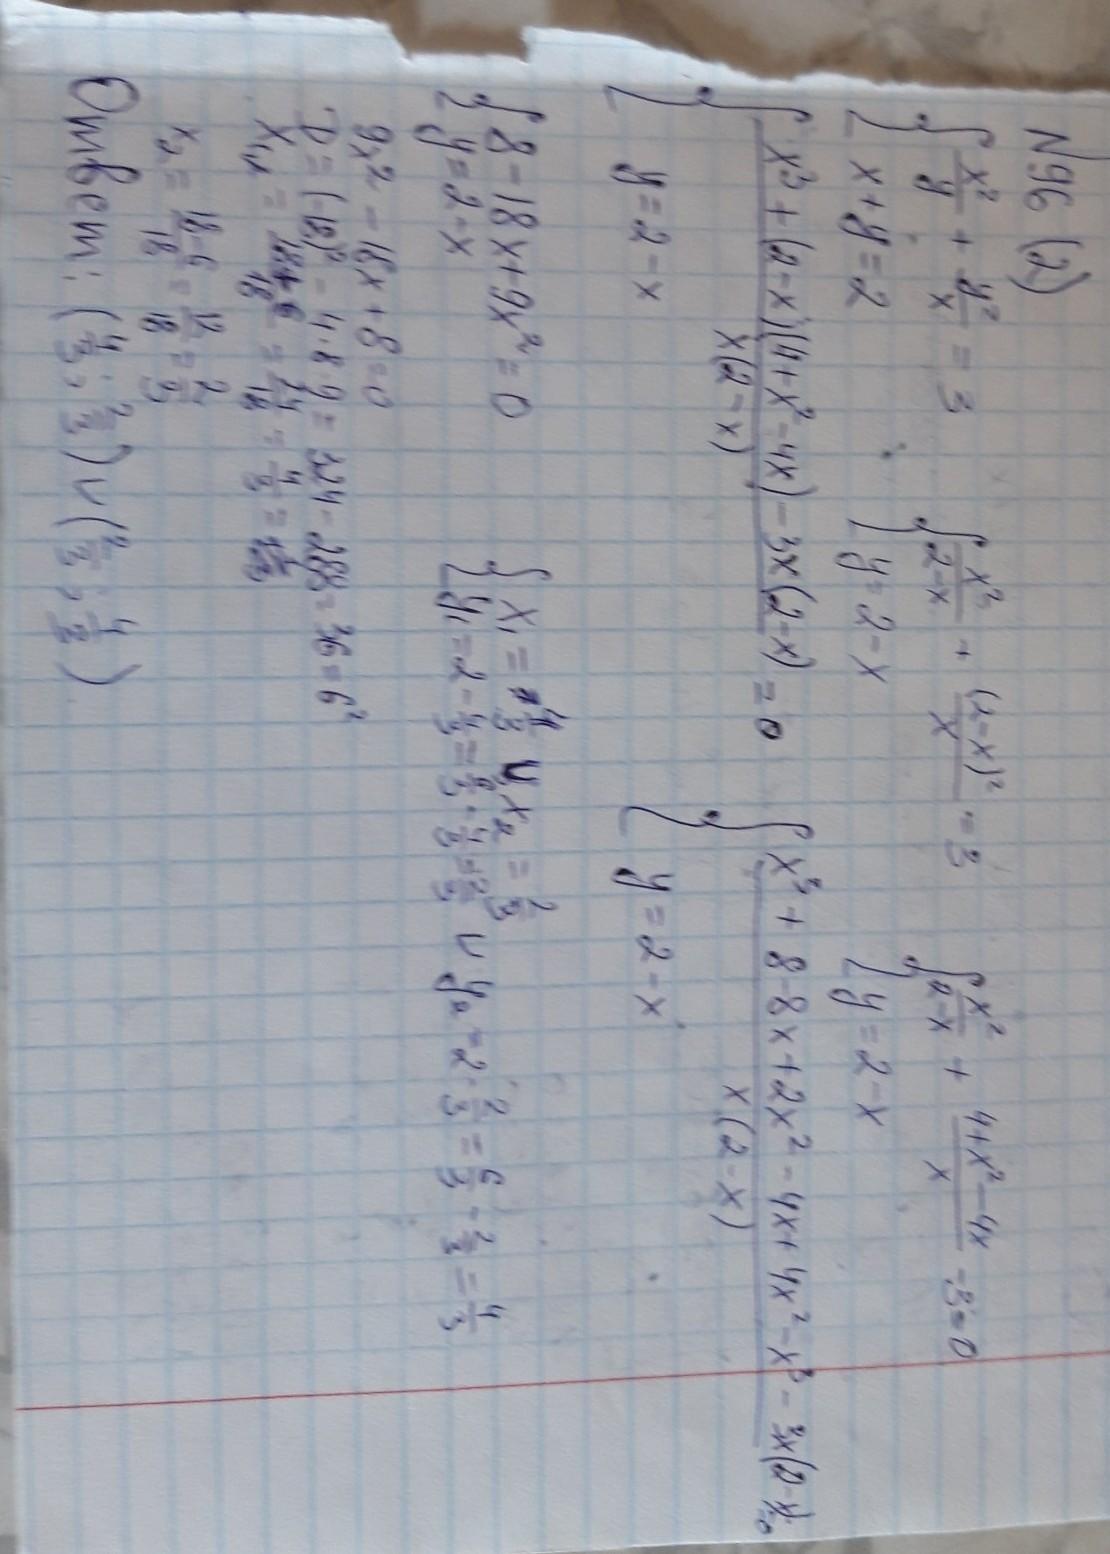 N96 (2)
{ x²/y + y²/x = 3 { x²/(2-x) + (2-x)²/x = 3 { x²/(2-x) + (4+x²-4x)/x -3=0
x+y=2 y=2-x y=2-x
{ (x³+(2-x)(4+x²-4x)-3x(2-x))/(x(2-x)) =0 { (x³+8-8x+2x²-4x+4x²-x³-3x(2-x))/(x(2-x)) =0
y=2-x y=2-x
{ 8-18x+9x²=0 { x₁= 4/3 ∪ x₂= 2/3
y=2-x y₁=2-4/3=6/3-4/3=2/3 ∪ y₂=2-2/3=6/3-2/3=4/3
9x²-18x+8=0
D=(-18)²-4·8·9=324-288=36=6²
x₁= (18+6)/18 = 24/18 = 4/3 = 1 1/3
x₂= (18-6)/18 = 12/18 = 2/3
Ответ: (4/3; 2/3) ∪ (2/3; 4/3)